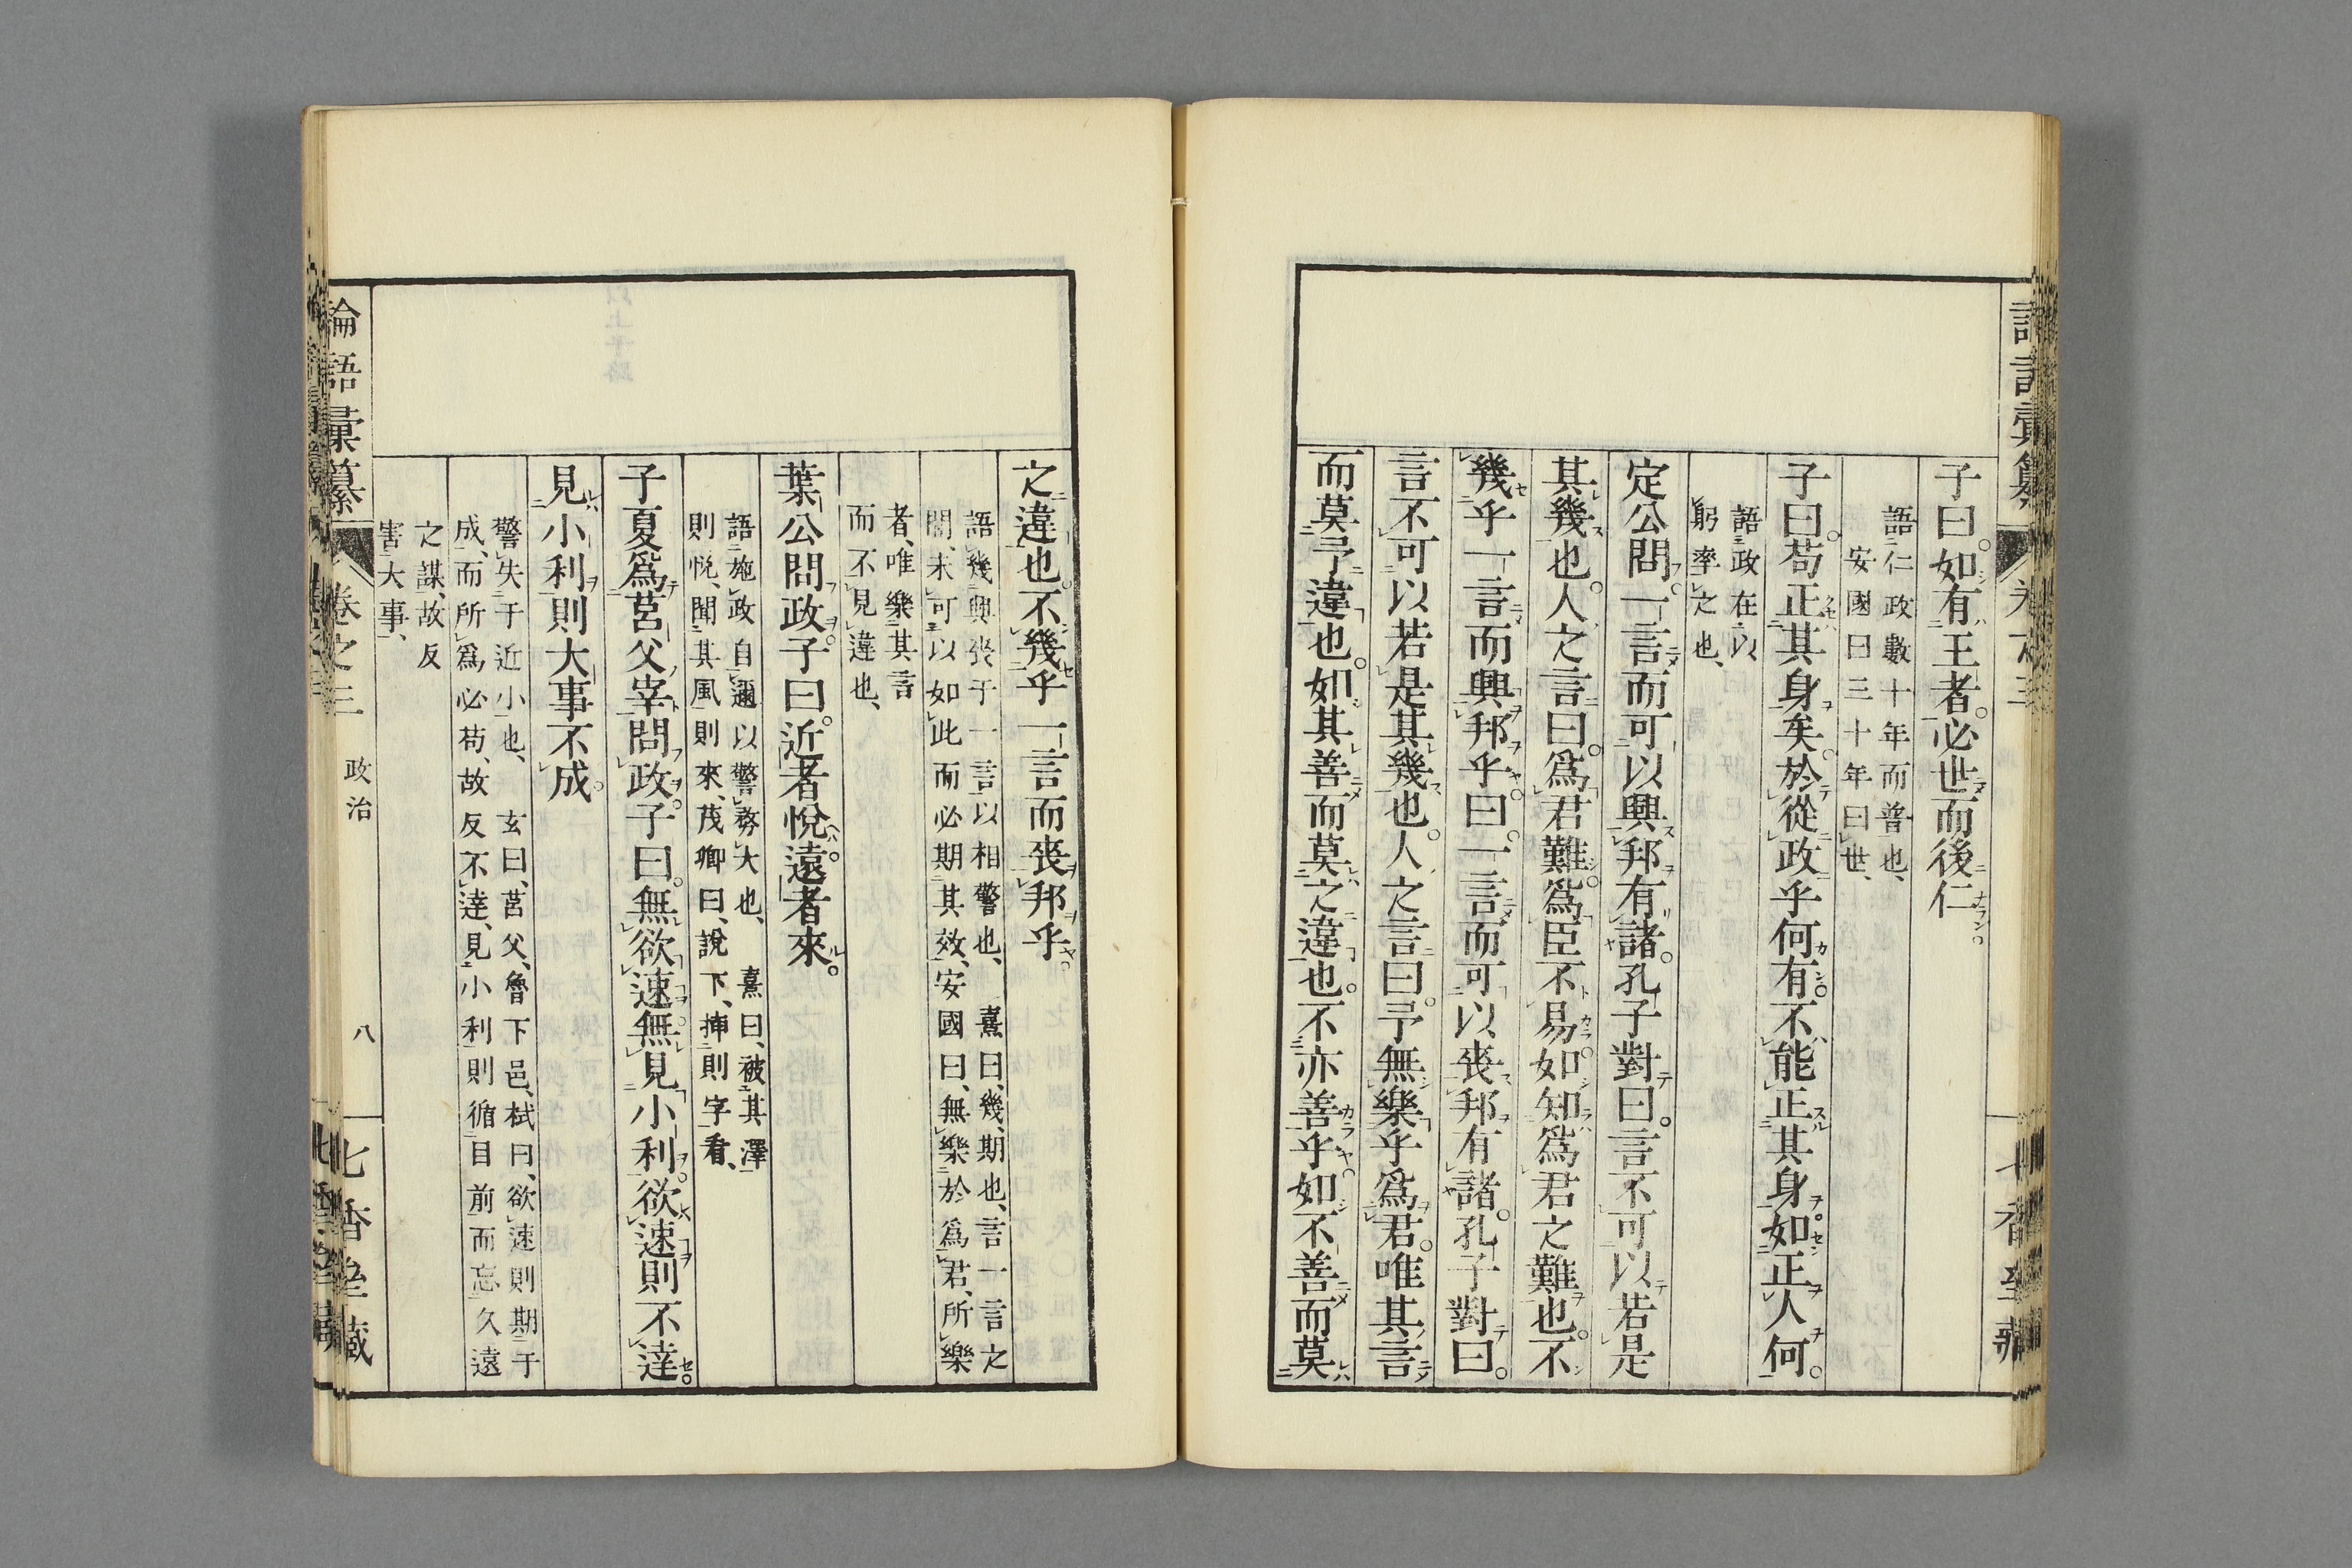 子曰。如有王者。必世而後仁。
語仁政數十年而普也、
安國曰三十年曰世、
子曰。苟正其身矣。於從政乎何有。不能正其身。如正人何。
語政在以
躬率之也、
定公問。一言而可以興邦有諸。孔子對曰。言不可以若是
其幾也。人之言曰。爲君難。爲臣不易。如知爲君之難也。不
幾乎一言而興邦乎。曰。一言而可以喪邦有諸。孔子對曰。
言不可以若是其幾也。人之言曰。予無樂乎爲君。唯其言
而莫予違也。如其善而莫之違也。不亦善乎。如不善而莫
之違也。不幾乎一言而喪邦乎。
語幾興喪于一言以相警也、 熹曰、幾、期也、言一言之
間、未可以如此而必期其效、安國曰、無樂於爲君、所樂
者、唯樂其言
而不見違也、
葉公問政。子曰。近者悅。遠者來。
語施政自邇以警務大也、 熹曰、被其澤
則悅、聞其風則來、茂卿曰、說下、挿則字看、
子夏爲莒父宰問政。子曰。無欲速。無見小利。欲速則不達。
見小利則大事不成。
警失于近小也、 玄曰、莒父、魯下邑、栻曰、欲速則期于
成、而所爲必苟、故反不達、見小利則循目前而忘久遠
之謀、故反
害大事、
論語彙纂 卷之三 政治 八 七香堂藏